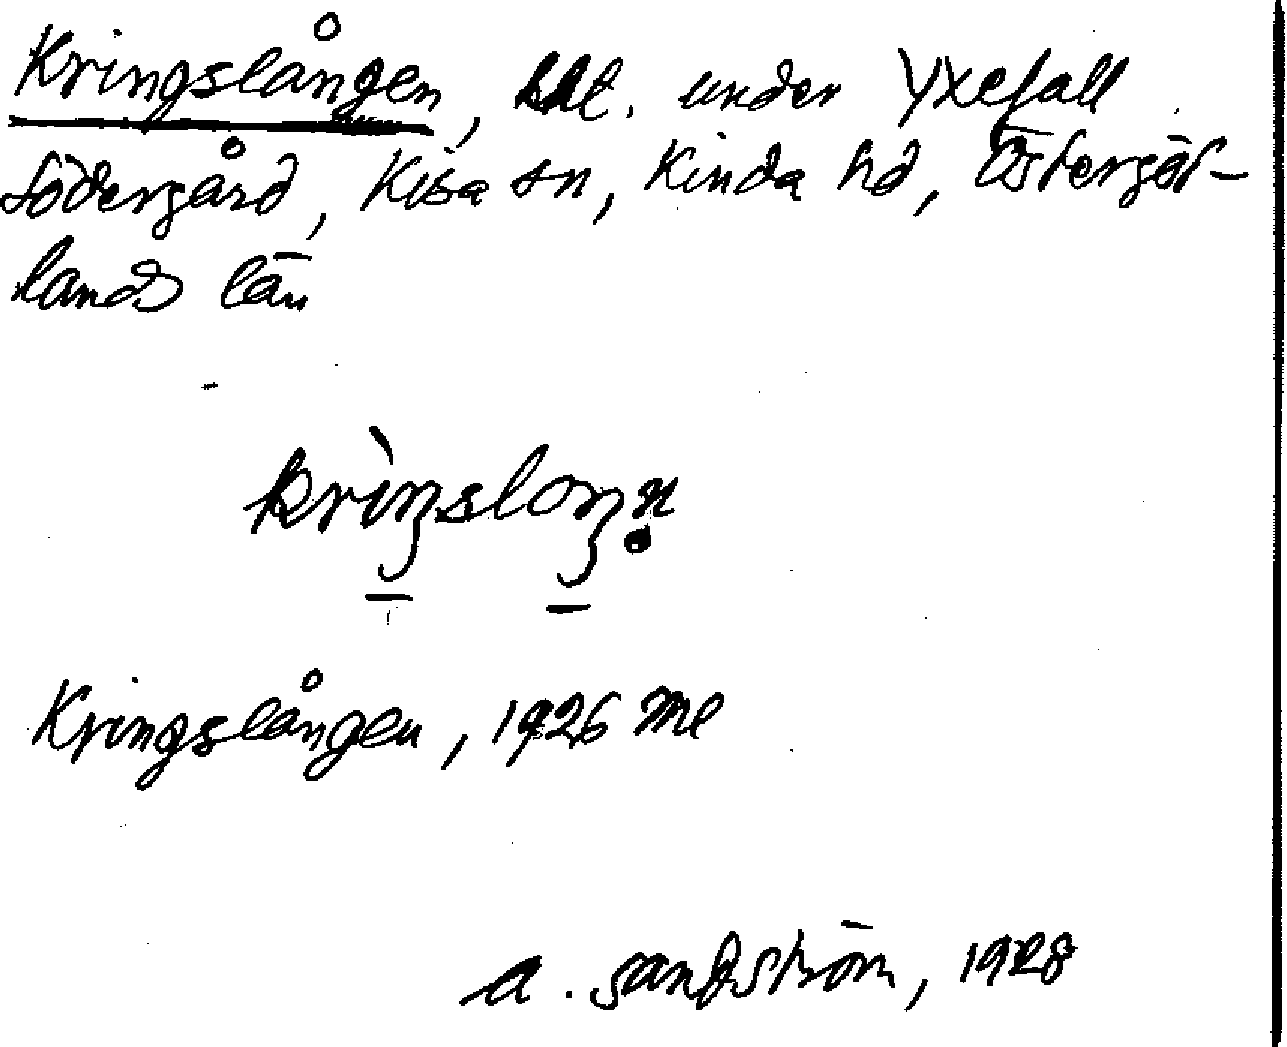 Kringslången, under Yxefall
Södergård, Kisa sn, Kinda hd, Östergöt-
lands län
krìŋsloŋn̥
Kringslången, 1926 me
A. Sandström, 1928